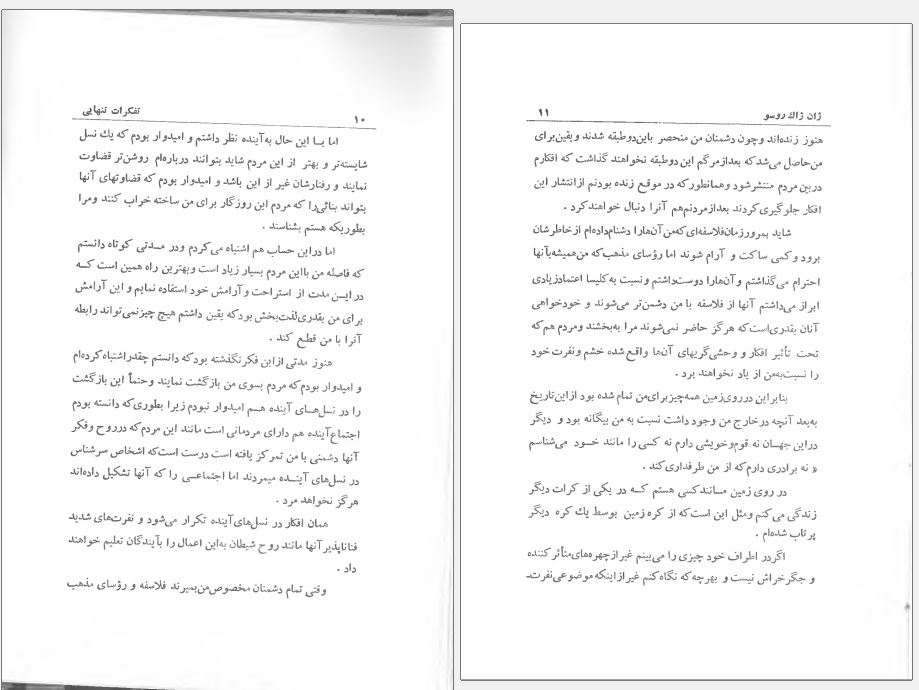 ۱۰ تفکرات تنهایی
اما بــا این حال به‌آینده نظر داشتم و امیدوار بودم که یك نسل
شایسته‌تر و بهتر از این مردم شاید بتوانند درباره‌ام روشن‌تر قضاوت
نمایند و رفتارشان غیر از این باشد و امیدوار بودم که قضاوتهای آنها
بتواند بنائی‌را که مردم این روزگار برای من ساخته خراب کنند ومرا
بطوریکه هستم بشناسند .
اما دراین حساب هم اشتباه می‌کردم ودر مــدتی کوتاه دانستم
که فاصله من بااین مردم بسیار زیاد است وبهترین راه همین است کــه
در ایــن مدت از استراحت و آرامش خود استفاده نمایم و این آرامش
برای من بقدری‌لذت‌بخش بودکه یقین داشتم هیچ چیزنمی‌تواند رابطه
آنرا با من قطـع کند .
هنوز مدتی ازاین فکرنگذشته بودکه دانستم چقدراشتباه‌کرده‌ام
و امیدوار بودم‌که مردم بسوی من بازگشت نمایند وحتماً این بازگشت
را در نسل‌هــای آینده هــم امیدوار نبودم زیرا بطوری‌که دانسته بودم
اجتماع‌آینده هم دارای مردمانی است مانند این مردم‌که درروح وفکر
آنها دشمنی با من تمرکز یافته است درست است‌که اشخاص سرشناس
در نسل‌های آینــده میمردند اما اجتماعــی را که آنها تشکیل داده‌اند
هرگز نخواهد مرد .
همان افکار در نسل‌های‌آینده تکرار می‌شود و نفرت‌های شدید
فناناپذیرآنها مانند روح شیطان به‌این اعمال را بآیندگان تعلیم خواهند
داد .
وقتی تمام دشمنان مخصوص‌من‌بمیرند فلاسفه و رؤسای مذهب
ژان ژاك روسو ۱۱
هنوز زنده‌اند وچون دشمنان من منحصر باین‌دوطبقه شدند ویقین‌برای
من‌حاصل می‌شدکه بعدازمرگم این دوطبقه نخواهند گذاشت که افکارم
دربین مردم منتشرشود وهمانطورکه در موقع زنده بودنم ازانتشار این
افکار جلوگیری‌کردند بعدازمردنم‌هم آنرا دنبال خواهند‌کرد .
شاید بمرورزمان‌فلاسفه‌ای‌که‌من‌آن‌هارا دشنام‌داده‌ام ازخاطرشان
برود وکمی ساکت و آرام شوند اما رؤسای مذهب‌که من‌همیشه‌بآنها
احترام می‌گذاشتم وآن‌هارا دوست‌داشتم ونسبت به‌کلیسا اعتمادزیادی
ابراز می‌داشتم آنها از فلاسفه با من دشمن‌تر می‌شوند و خودخواهی
آنان بقدری‌است‌که هرگز حاضر نمی‌شوند مرا به‌بخشند ومردم هم‌که
تحت تأثیر افکار و وحشی‌گریهای آن‌ها واقع شده خشم ونفرت خود
را نسبت‌به‌من از یاد نخواهند برد .
بنابراین درروی‌زمین همه‌چیزبرای‌من تمام شده بود ازاین‌تاریخ
به‌بعد آنچه درخارج من وجود داشت نسبت به من بیگانه بود و دیگر
دراین جهــان نه قوم‌وخویشی دارم نه کسی‌را مانند خــود می‌شناسم
و نه برادری دارم‌که از من طرفداری‌کند .
در روی زمین مــانندکسی هستم کــه در یکی از کرات دیگر
زندگی می‌کنم ومثل این است‌که از کره زمین بوسط یك کره دیگر
پرتاب شده‌ام .
اگردر اطراف خود چیزی را می‌بینم غیرازچهره‌های‌متأثرکننده
و جگرخراش نیست و بهرچه‌که نگاه‌کنم غیرازاینکه موضوعی‌نفرت‌ـ